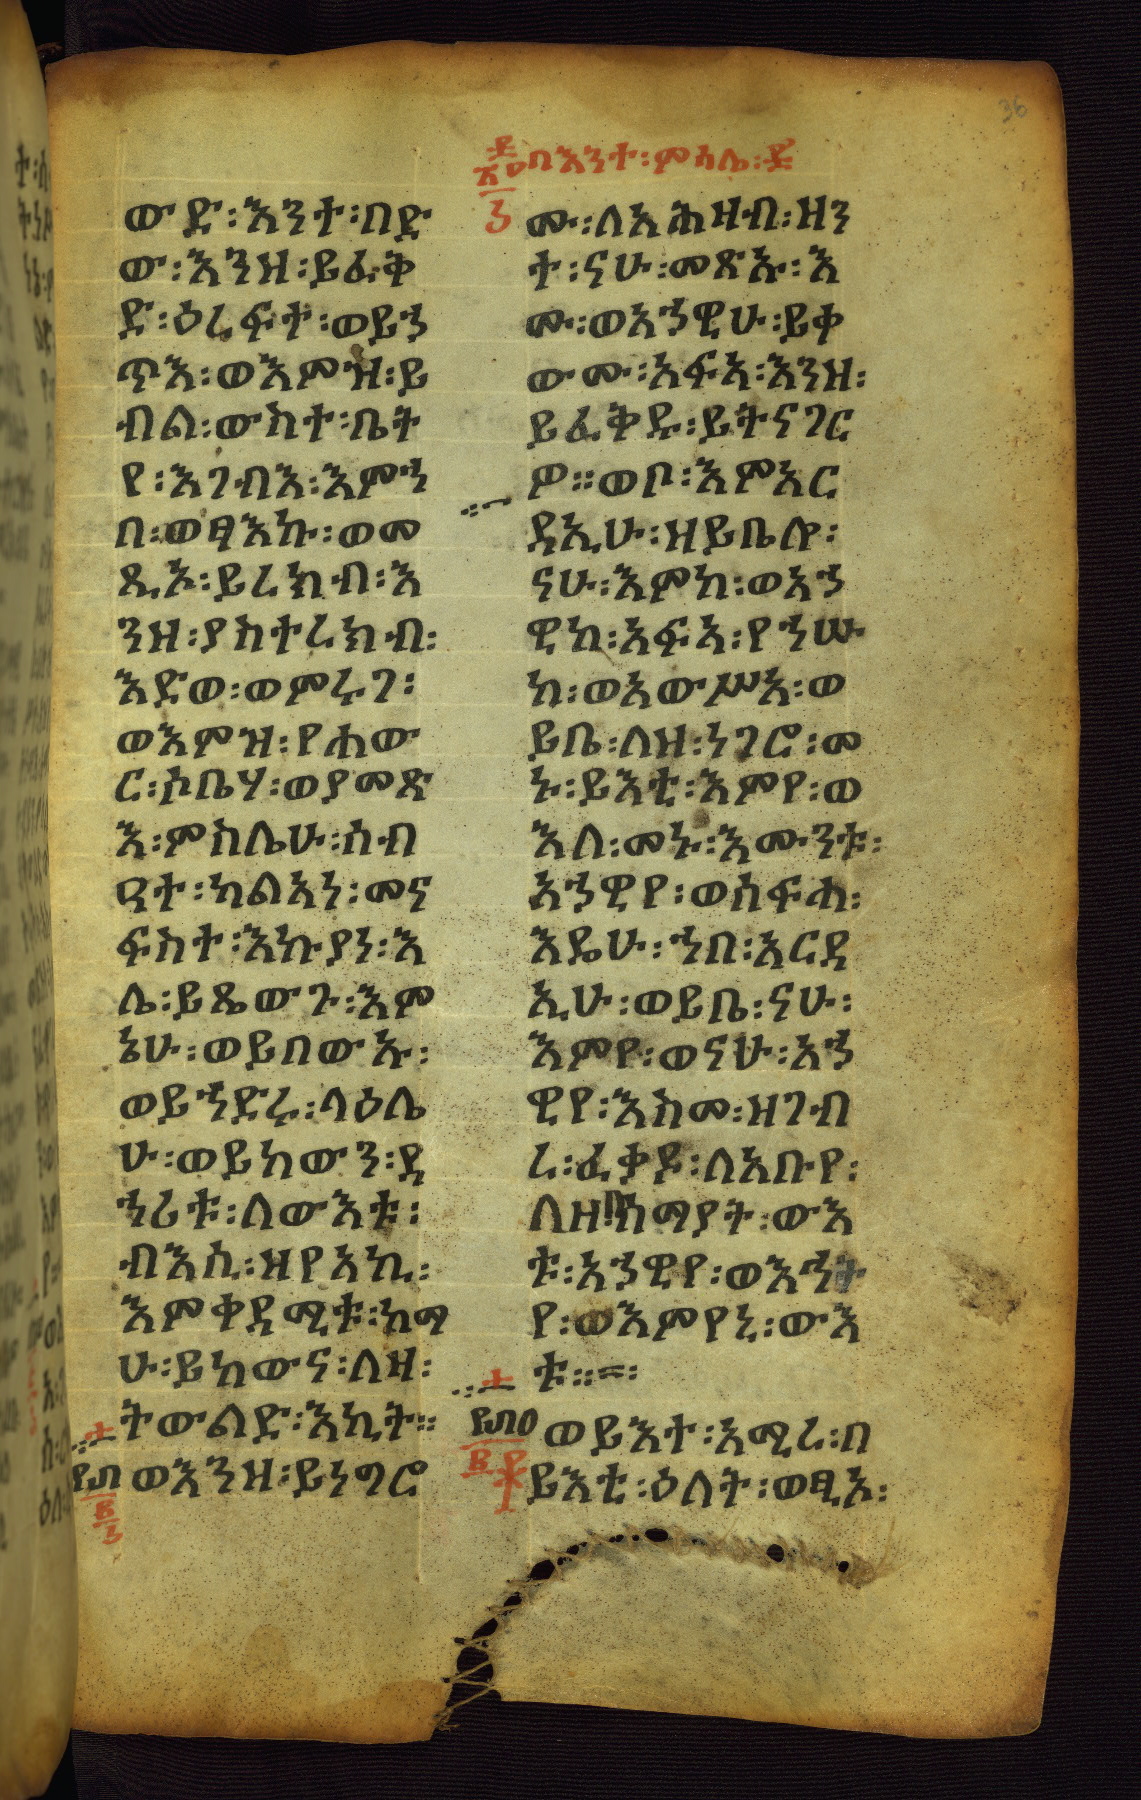 በእንተ፡ምሳሌ፡
ውድ፡እንተ፡በድ
ው፡እንዘ፡ይፈቅ
ድ፡ዕረፍተ፡ወይኀ
ጥእ፡ወእምዝ፡ይ
ብል፡ውስተ፡ቤት
የ፡እገብእ፡እምኀ
በ፡ወፃእኩ፡ወመ
ጺኦ፡ይረክብ፡እ
ንዘ፡ያስተረክብ፡
እድወ፡ወምሩገ፡
ወእምዝ፡የሐው
ር፡ሶቤሃ፡ወያመጽ
እ፡ምስሌሁ፡ሰብ
ዓተ፡ካልአነ፡መና
ፍስተ፡እኩያነ፡እ
ለ፡ይጼውጉ፡እም
ኔሁ፡ወይበውኡ፡
ወይኀድሩ፡ላዕሌ
ሁ፡ወይከውን፡ደ
ኀሪቱ፡ለውእቱ፡
ብእሲ፡ዘየአኪ፡
እምቀዳሚቱ፡ከማ
ሁ፡ይከውና፡ለዛ፡
ትውልድ፡እኪት።
ወእንዘ፡ይነግሮ
ሙ፡ለአሕዛብ፡ዘን
ተ፡ናሁ፡መጽኡ፡እ
ሙ፡ወአኀዊሁ፡ይቀ
ውሙ፡አፍአ፡እንዘ፡
ይፈቅዱ፡ይትናገር
ዎ።ወቦ፡እምአር
ዳኢሁ፡ዘይቤሎ፡
ናሁ፡እምከ፡ወአኀ
ዊከ፡አፍአ፡የኀሡ
ከ፡ወአውሥአ፡ወ
ይቤ፡ለዘ፡ነገሮ፡መ
ኑ፡ይእቲ፡እምየ፡ወ
እለ፡መኑ፡እሙንቱ፡
አኀዊየ፡ወሰፍሐ፡
እዴሁ፡ኀበ፡አርዳ
ኢሁ፡ወይቤ፡ናሁ፡
እምየ፡ወናሁ፡አኀ
ዊየ፡እስመ፡ዘገብ
ረ፡ፈቃዶ፡ለአቡየ፡
ዘበሰማያት፡ውእ
ቱ፡እኀዊየ፡ወእኀት
የ፡ወእምየኒ፡ውእ
ቱ።
ወይእተ፡አሚረ፡በ
ይእቲ፡ዕለት፡ወፂኦ፡